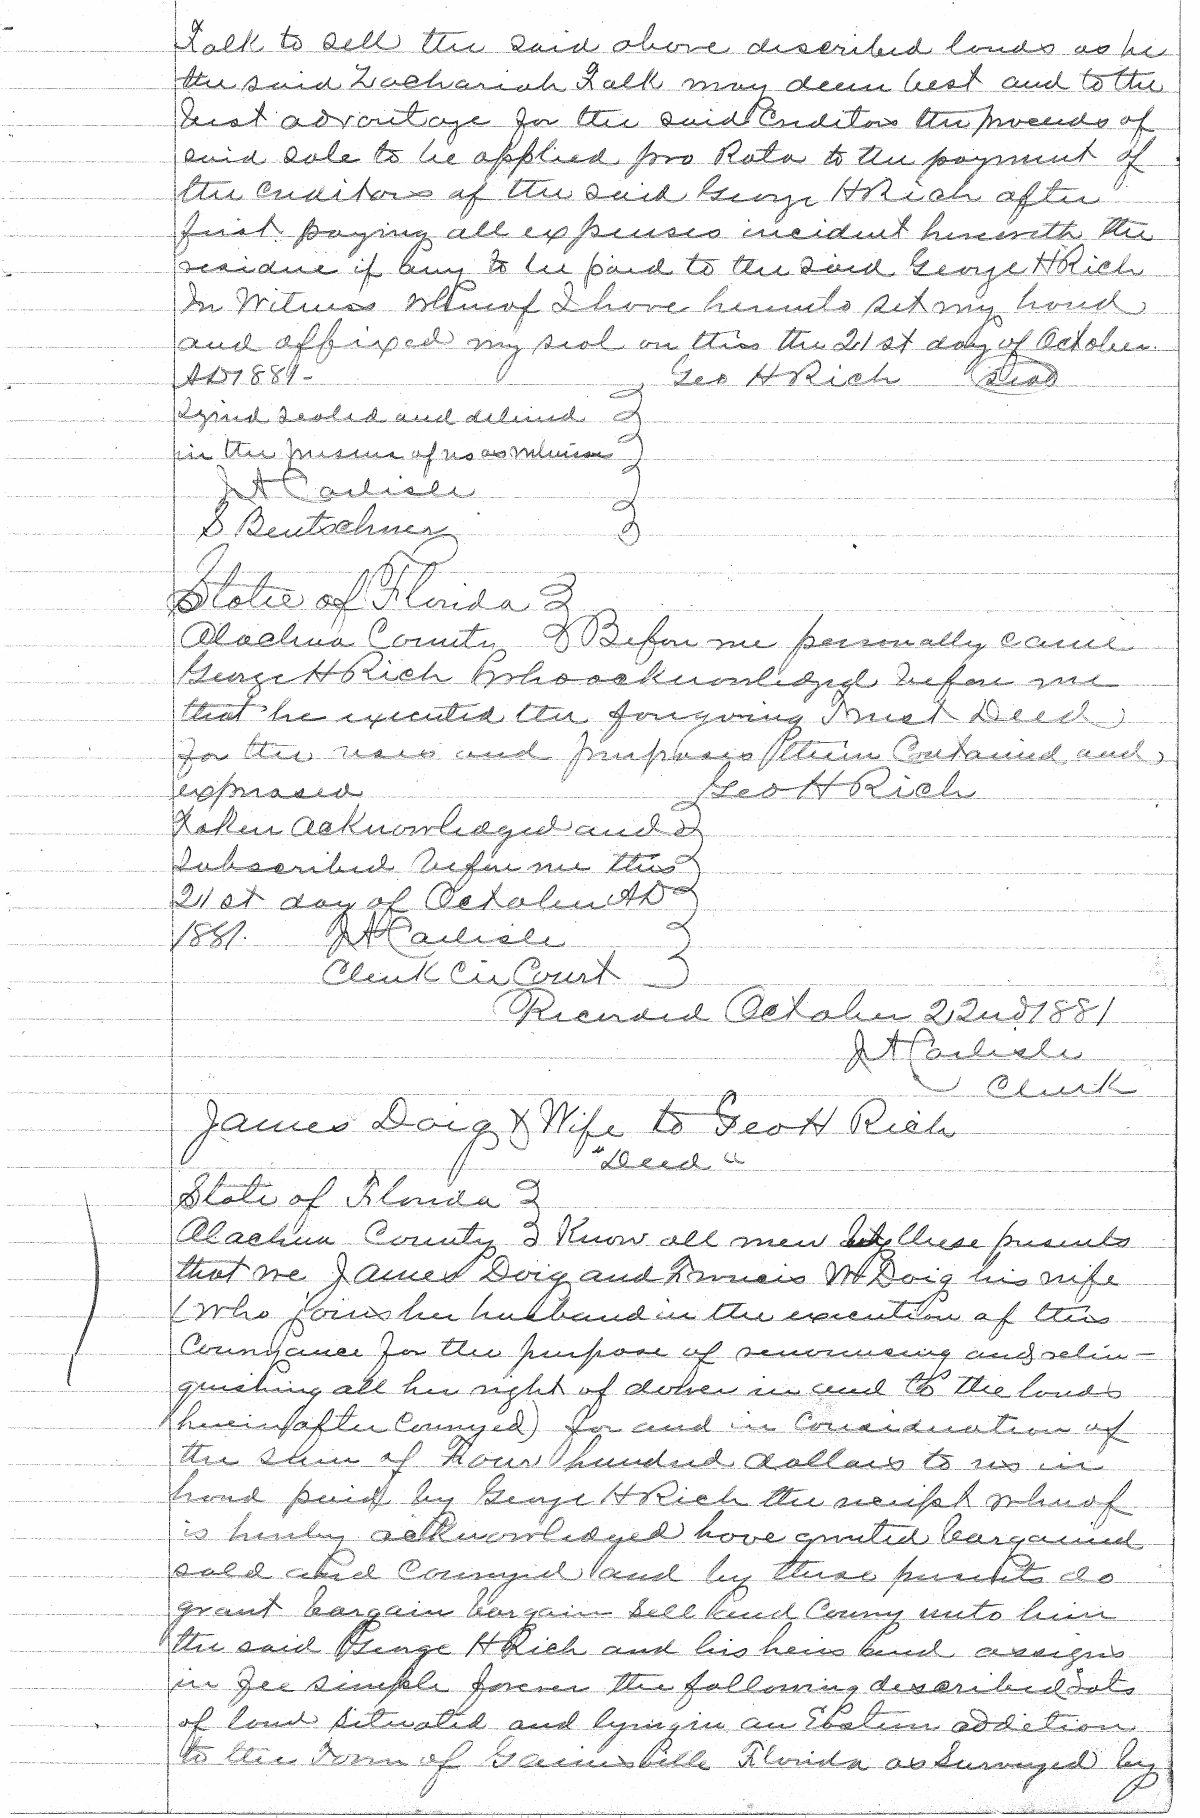 Falk to sell the said above described lands as he
the said Zachariah Falk may deem best and to the
best advantage for the said Creditors the proceeds of
said sale to be applied pro Rata to the payment of
the creditors of the said George H Rich after
first paying all expenses incident herewith the
residue if any to be paid to the said George H Rich
In Witness Whereof I have hereunto set my hand
and affixed my seal on this the 21st day of October
AD 1881- Geo H Rich Seal
Signed sealed and delivered
in the presence of us as witnesses
J A Carlisle
S Beutschner
State of Florida
Alachua County Before me personally came
George H Rich who acknowledged before me
that he executed the foregoing Trust Deed
for the uses and purposes therein Contained and
expressed Geo H Rich
Taken acknowledged and
subscribed before me this
21st day of October AD
1881. J A Carlisle
Clerk Cir Court
Recorded October 22nd 1881
J A Carlisle
Clerk
James Doig & Wife to Geo H Rich
"Deed"
State of Florida
Alachua County Know all men by these presents
that we James Doig and Francis M Doig his wife
(who joins her husband in the execution of this
Conveyance for the purpose of renouncing and relin-
quishing all her right of dower in and to the lands
hereinafter Conveyed) for and in Consideration of
the sum of Four hundred dollars to us in
hand paid by George H Rich the receipt whereof
is hereby acknowledged have granted bargained
sold and Conveyed and by these presents do
grant bargain bargain sell and Convey unto him
the said George H Rich and his heirs and assigns
in fee simple forever the following described Lots
of land situated and lying in an Eastern addition
to the Town of Gainesville Florida as Surveyed by